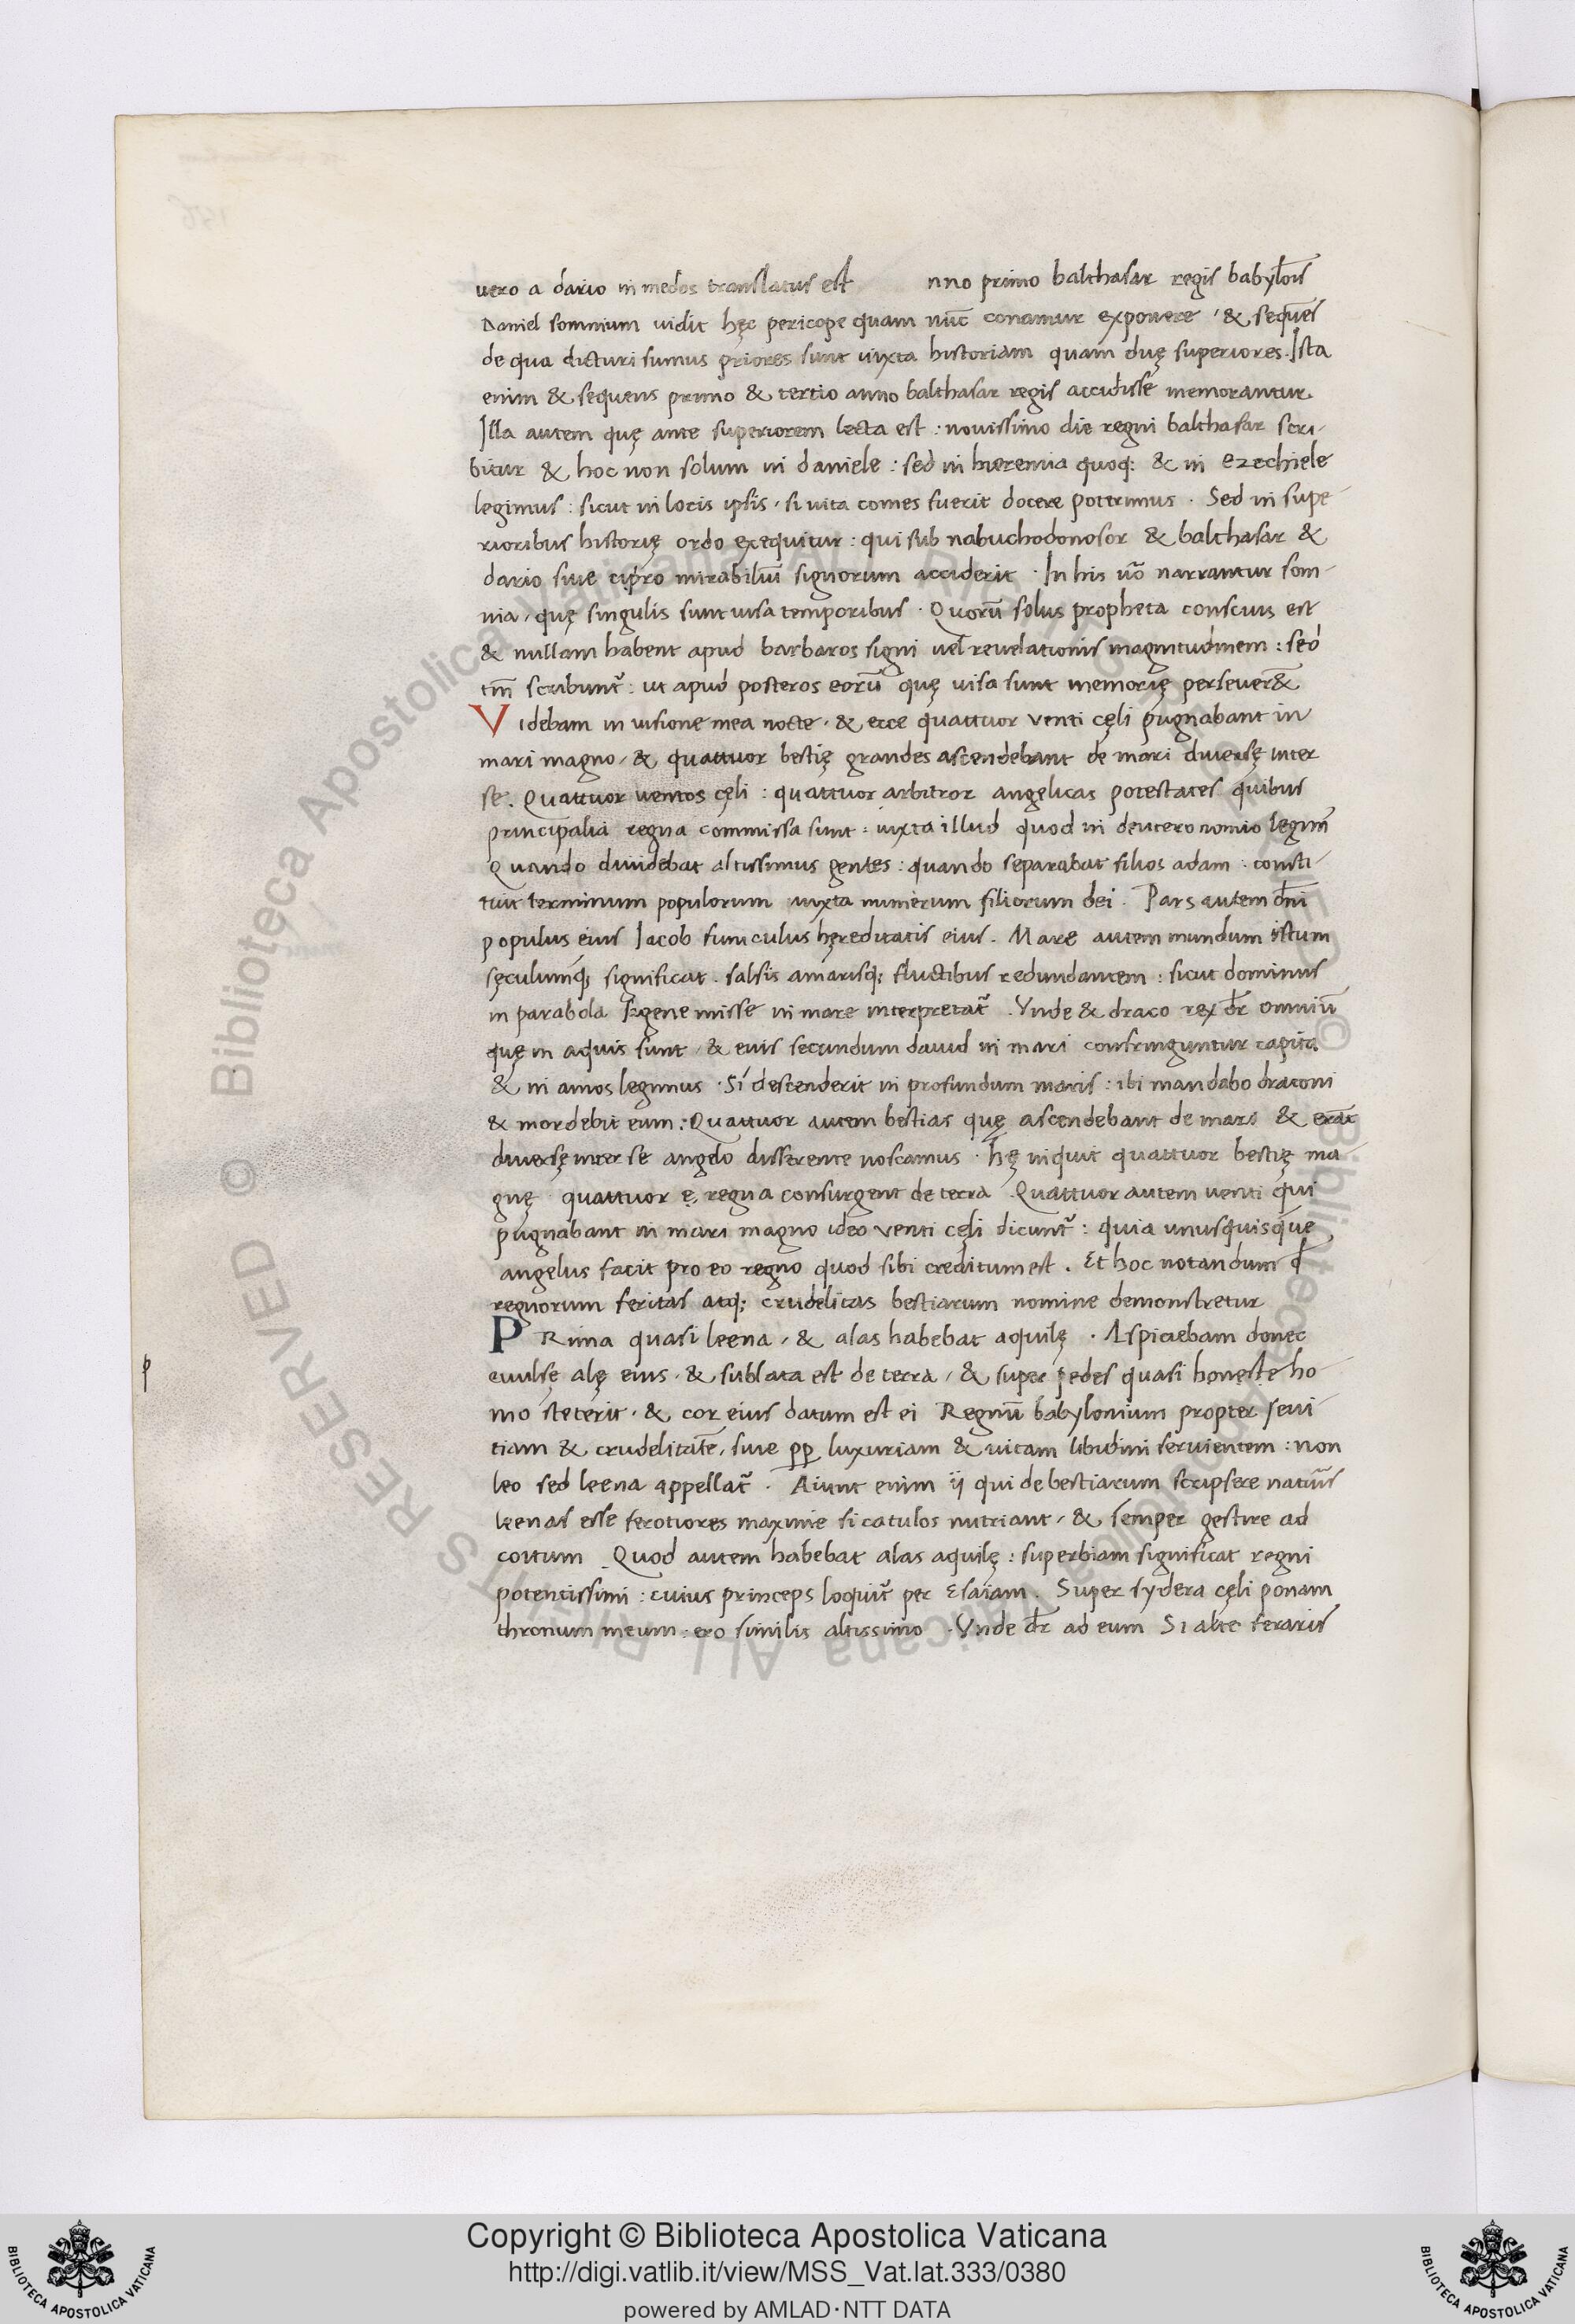 vero a dario in medos translatus est nno primo balthasar regis babyl̄ois
Daniel somnium vidit hęc pericope quam nūc conamur exponere / & sequēs
de qua dicturi sumus priores sunt iuxta historiam quam duę superiores. Ista
enim & sequens primo & tertio anno balthasar regis accidisse memorantur.
Illa autem quę ante superiorem lecta est : novissimo die regni balthasar scri-
bitur & hoc non solum in daniele : sed in hieremia quoq; & in ezechiele
legimus : sicut in locis ipsis, si vita comes fuerit docere poterimus . Sed in supe-
rioribus historię ordo exequitur : qui sub nabuchodonosor & balthasar &
dario sive cipro mirabiliū signorum acciderit . In his ūo narrantur som-
nia, quę singulis sunt visa temporibus . Quorū solus propheta conscius est
& nullam habent apud barbaros signi vel revelationis magnitudinem : sed
tm̄ scribunt̄ : ut apud posteros eorū quę visa sunt memorię persever&
Videbam in visione mea nocte, & ecce quattuor venti cęli pugnabant in
mari magno, & quattuor bestię grandes ascendebant de mari diversę inter
se. Quattuor ventos cęli : quattuor arbitror angelicas potestates quibus
principalia regna commissa sunt : iuxta illud quod in deuteronomio legim̄
Quando dividebat altissimus gentes : quando separabat filios adam : consti-
tuit terminum populorum iuxta numerum filiorum dei . Pars autem dn̄i
populus eius Iacob funiculus hęreditatis eius . Mare autem mundum istum
sęculumq; significat . salsis amarisq; fluctibus redundantem : sicut dominus
in parabola sagene misse in mare interpretat̄ . Vnde & draco rex dr̄ omniū
quę in aquis sunt, & eius secundum david in mari confringuntur capita
& in amos legimus . Si descenderit in profundum maris : ibi mandabo draconi
& mordebit eum : Quattuor autem bestias quę ascendebant de mari & erāt
diversę inter se angelo disserente noscamus . hę inquit quattuor bestię ma
gnę quattuor ę. regna consurgent de terra . Quattuor autem venti qui
pugnabant in mari magno ideo venti cęli dicunt̄ : quia unusquisque
angelus facit pro eo regno quod sibi creditum est . Et hoc notandum qd̄
regnorum feritas atq; crudelitas bestiarum nomine demonstretur
PRima quasi leena, & alas habebat aquilę . Aspiciebam donec
evulsę alę eius, & sublata est de terra, & super pedes quasi honeste ho-
mo steterit, & cor eius datum est ei Regnū babylonium propter sevi-
tiam & crudelitatē, sive pp̄ luxuriam & vitam libidini servientem : non
leo sed leena appellat̄ . Aiunt enim ij qui de bestiarum scripsere natur̄is
leenas esse ferotiores maxime si catulos nutriant, & semper gestire ad
coitum . Quod autem habebat alas aquilę : superbiam significat regni
potentissimi : cuius princeps loquit̄ per Esaiam . Super sydera cęli ponam
thronum meum : ero similis altissimo . Vnde dr̄ ad eum Si alte feraris
p
Copyright © Biblioteca Apostolica Vaticana
http://digi.vatlib.it/view/MSS_Vat.lat.333/0380
powered by AMLAD·NTT DATA